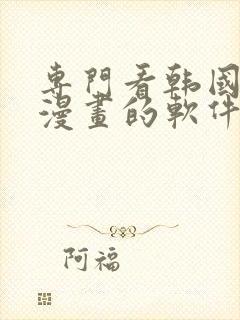 專門看韩國
漫畫的軟件
阿福